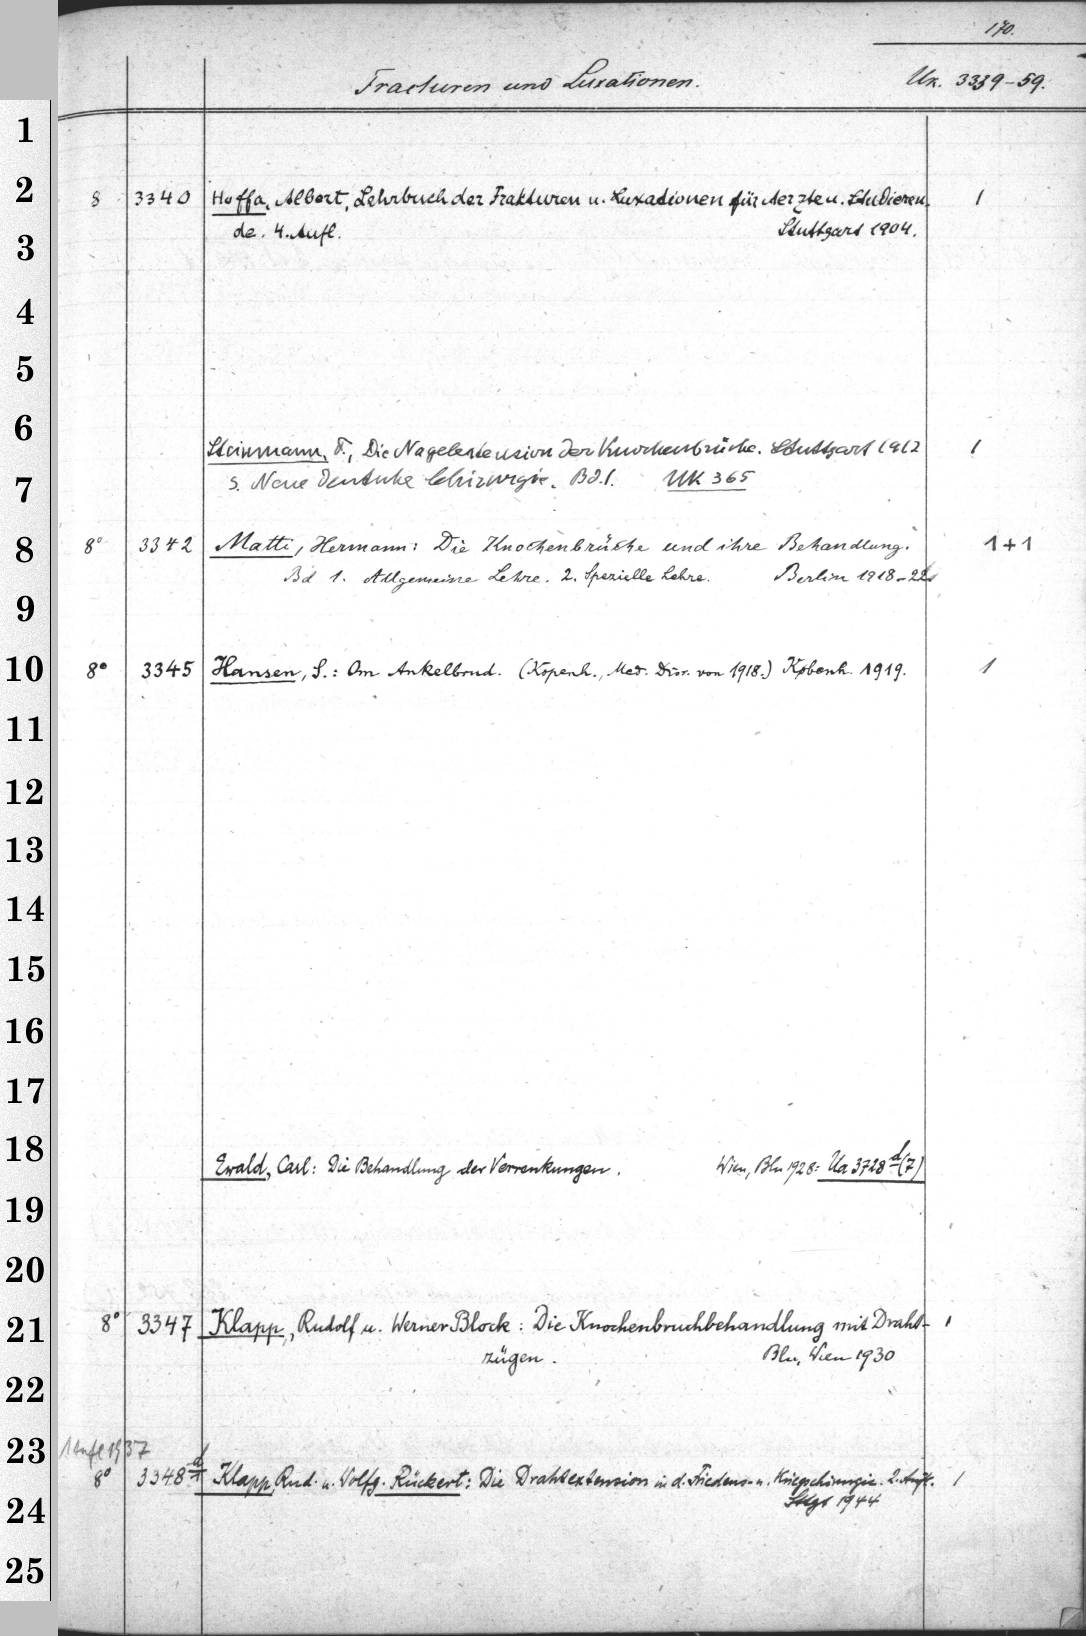 170.
Fracturen und Luxationen. Uk. 3339-59.
1
2
3
4
5
6
7
8
9
10
11
12
13
14
15
16
17
18
19
20
21
22
23
24
25
8 3340 Hoffa, Albert, Lehrbuch der Frakturen u. Luxationen für Aerzte u. Studieren- 1
de. 4. Aufl. Stuttgart 1904.
Steinmann, F., Die Nagelextension der Knochenbrüche. Stuttgart 1912 1
s. Neue Deutsche Chirurgie. Bd. 1. UK 365
8° 3342 Matti, Hermann: Die Knochenbrüche und ihre Behandlung. 1+1
Bd 1. Allgemeine Lehre. 2. Spezielle Lehre. Berlin 1918-22
8° 3345 Hansen, S.: Om Ankelbrud. (Kopenh., Med. Diss. von 1918.) Københ. 1919. 1
Ewald, Carl: Die Behandlung der Verrenkungen. Wien, Bln 1928: Ua 3728 d(7)
8° 3347 Klapp, Rudolf u. Werner Block: Die Knochenbruchbehandlung mit Draht- 1
zügen. Bln, Wien 1930
1 Aufl 1937
8° 3348 d/1 Klapp, Rud. u. Wolfg. Rückert: Die Drahtextension in d. Friedens- u. Kriegschirurgie. 2. Aufl. 1
Stgt 1944